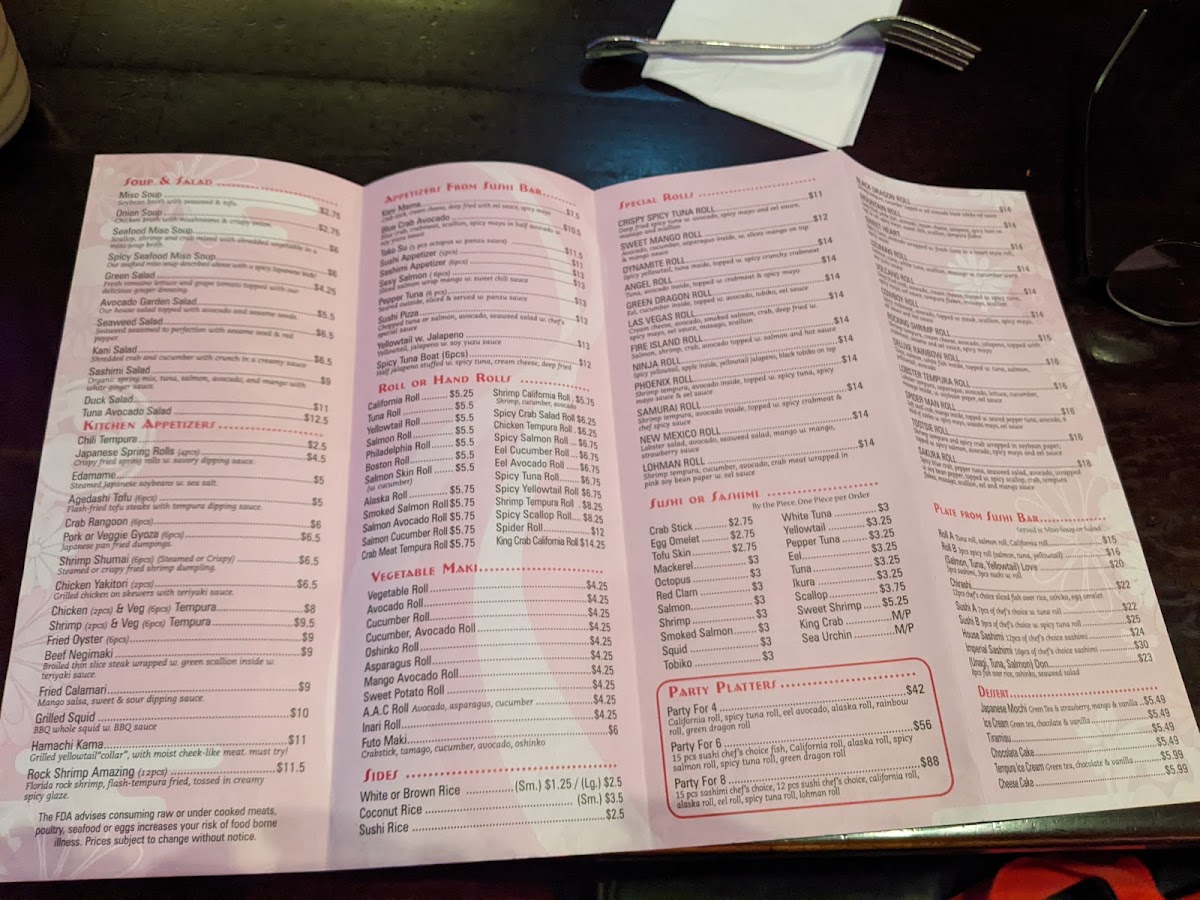 SOUP & SALAD
Miso Soup $2.75
Soybean broth with seaweed & tofu.
Onion Soup $2.75
Chicken broth with mushrooms & crispy onion.
Seafood Miso Soup $6
Scallop, shrimp and crab mixed with shredded vegetable in a
miso soup broth.
Spicy Seafood Miso Soup $6
Our seafood miso soup described above with a spicy Japanese kick!
Green Salad $4.25
Fresh romaine lettuce and grape tomato topped with our
delicious ginger dressing.
Avocado Garden Salad $5.5
Our house salad topped with avocado and sesame seeds.
Seaweed Salad $6.5
Seaweed seasoned to perfection with sesame seed & red
pepper.
Kani Salad $6.5
Shredded crab and cucumber with crunch in a creamy sauce
Sashimi Salad $9
Organic spring mix, tuna, salmon, avocado, and mango with
white ginger sauce.
Duck Salad $11
Tuna Avocado Salad $12.5
KITCHEN APPETIZERS
Chili Tempura $2.5
Japanese Spring Rolls (4pcs) $4.5
Crispy fried spring rolls w. savory dipping sauce.
Edamame $5
Steamed Japanese soybeans w. sea salt.
Agedashi Tofu (6pcs) $5
Flash-fried tofu steaks with tempura dipping sauce.
Crab Rangoon (6pcs) $6
Pork or Veggie Gyoza (6pcs) $6.5
Japanese pan fried dumpings.
Shrimp Shumai (6pcs) (Steamed or Crispy) $6.5
Steamed or crispy fried shrimp dumpling.
Chicken Yakitori (2pcs) $6.5
Grilled chicken on skewers with teriyaki sauce.
Chicken (2pcs) & Veg (6pcs) Tempura $8
Shrimp (2pcs) & Veg (6pcs) Tempura $9.5
Fried Oyster (6pcs) $9
Beef Negimaki $9
Broiled thin slice steak wrapped w. green scallion inside w.
teriyaki sauce.
Fried Calamari $9
Mango salsa, sweet & sour dipping sauce.
Grilled Squid $10
BBQ whole squid w. BBQ sauce
Hamachi Kama $11
Grilled yellowtail "collar", with moist cheek-like meat. must try!
Rock Shrimp Amazing (12pcs) $11.5
Florida rock shrimp, flash-tempura fried, tossed in creamy
spicy glaze.
The FDA advises consuming raw or under cooked meats,
poultry, seafood or eggs increases your risk of food borne
illness. Prices subject to change without notice.
APPETIZERS FROM SUSHI BAR
Kani Mama $7.5
Crab stick, cream cheese, deep fried with eel sauce, spicy mayo
Blue Crab Avocado $10.5
Blue crab, crabmeat, scallion, spicy mayo in half avocado w.
soy yuzu sauce
Tako Su (5 pcs octopus w. panzu sauce) $11.5
Sushi Appetizer (5pcs) $11
Sashimi Appetizer (6pcs) $13
Sexy Salmon (6pcs) $13
Sliced salmon wrap mango w. sweet chili sauce
Pepper Tuna (6 pcs) $13
Seared outside, sliced & served w. panzu sauce
Sushi Pizza $13
Chopped tuna or salmon, avocado, seaweed salad w. chef's
special sauce
Yellowtail w. Jalapeno $13
Yellowtail, jalapeno w. soy yuzu sauce
Spicy Tuna Boat (6pcs) $12
Half jalapeno stuffed w. spicy tuna, cream cheese, deep fried
ROLL OR HAND ROLLS
California Roll $5.25
Tuna Roll $5.5
Yellowtail Roll $5.5
Salmon Roll $5.5
Philadelphia Roll $5.5
Boston Roll $5.5
Salmon Skin Roll $5.5
(w. cucumber)
Alaska Roll $5.75
Smoked Salmon Roll $5.75
Salmon Avocado Roll $5.75
Salmon Cucumber Roll $5.75
Crab Meat Tempura Roll $5.75
Shrimp California Roll $5.75
Shrimp, cucumber, avocado
Spicy Crab Salad Roll $6.25
Chicken Tempura Roll $6.25
Spicy Salmon Roll $6.75
Eel Cucumber Roll $6.75
Eel Avocado Roll $6.75
Spicy Tuna Roll $5.75
Spicy Yellowtail Roll $6.75
Shrimp Tempura Roll $8.25
Spicy Scallop Roll $8.25
Spider Roll $12
King Crab California Roll $14.25
VEGETABLE MAKI
Vegetable Roll $4.25
Avocado Roll $4.25
Cucumber Roll $4.25
Cucumber, Avocado Roll $4.25
Oshinko Roll $4.25
Asparagus Roll $4.25
Mango Avocado Roll $4.25
Sweet Potato Roll $4.25
A.A.C Roll Avocado, asparagus, cucumber $4.25
Inari Roll $4.25
Futo Maki $6
Crabstick, tamago, cucumber, avocado, oshinko
SIDES
White or Brown Rice (Sm.) $1.25 / (Lg.) $2.5
Coconut Rice (Sm.) $3.5
Sushi Rice $2.5
SPECIAL ROLLS
CRISPY SPICY TUNA ROLL $11
Deep fried spicy tuna w. avocado, spicy mayo and eel sauce,
masago and scallion
SWEET MANGO ROLL $12
Avocado, cucumber, asparagus inside, w. slices mango on top
& mango sauce
DYNAMITE ROLL $14
Spicy yellowtail, tuna inside, topped w. spicy crunchy crabmeat
ANGEL ROLL $14
Tuna, avocado inside, topped w. crabmeat & spicy mayo
GREEN DRAGON ROLL $14
Eel, cucumber inside, topped w. avocado, tobiko, eel sauce
LAS VEGAS ROLL $14
Cream cheese, avocado, smoked salmon, crab, deep fried w.
spicy mayo, eel sauce, masago, scallion
FIRE ISLAND ROLL $14
Salmon, shrimp, crab, avocado topped w. salmon and hot sauce
NINJA ROLL $14
Spicy yellowtail, apple inside, yellowtail jalapeno, black tobiko on top
PHOENIX ROLL $14
Shrimp tempura, avocado inside, topped w. spicy tuna, spicy
mayo sauce & eel sauce
SAMURAI ROLL $14
Shrimp tempura, avocado inside, topped w. spicy crabmeat &
chef spicy sauce
NEW MEXICO ROLL $14
Lobster salad, avocado, seaweed salad, mango w. mango,
strawberry sauce
LOHMAN ROLL $14
Shrimp tempura, cucumber, avocado, crab meat wrapped in
pink soy bean paper w. eel sauce
SUSHI OR SASHIMI
By the Piece, One Piece per Order
Crab Stick $2.75
Egg Omelet $2.75
Tofu Skin $2.75
Mackerel $3
Octopus $3
Red Clam $3
Salmon $3
Shrimp $3
Smoked Salmon $3
Squid $3
Tobiko $3
White Tuna $3
Yellowtail $3.25
Pepper Tuna $3.25
Eel $3.25
Tuna $3.25
Ikura $3.25
Scallop $3.75
Sweet Shrimp $5.25
King Crab M/P
Sea Urchin M/P
PARTY PLATTERS
Party For 4 $42
California roll, spicy tuna roll, eel avocado, alaska roll, rainbow
roll, green dragon roll
Party For 6 $56
15 pcs sushi chef's choice fish, California roll, alaska roll, spicy
salmon roll, spicy tuna roll, green dragon roll
Party For 8 $88
15 pcs sashimi chef's choice, 12 pcs sushi chef's choice, california roll,
alaska roll, eel roll, spicy tuna roll, lohman roll
BLACK DRAGON ROLL $14
MOUNTAIN ROLL $14
HEART $14
$14
VOLCANO ROLL $14
$14
ROCKING SHRIMP ROLL $15
DELUXE RAINBOW ROLL $16
LOBSTER TEMPURA ROLL $16
SPIDER MAN ROLL $16
TOOTSIE ROLL $16
Shrimp tempura and spicy crab wrapped in soybean paper,
SAKURA ROLL $18
PLATE FROM SUSHI BAR
Served w. Miso Soup or Salad
Roll A Tuna roll, salmon roll, California roll $15
Roll B 3pcs spicy roll (salmon, tuna, yellowtail) $16
(Salmon, Tuna, Yellowtail) Love $20
3pcs sashimi, 3pcs sushi w. roll
Chirashi $22
12pcs chef's choice sliced fish over rice, oshinko, egg omelet
Sushi A 7pcs of chef's choice w. tuna roll $22
Sushi B 9pcs of chef's choice w. spicy tuna roll $25
House Sashimi 12pcs of chef's choice sashimi $24
Imperial Sashimi 16pcs of chef's choice sashimi $30
(Unagi, Tuna, Salmon) Don $23
8pcs fish over rice, oshinko, seaweed salad
DESSERT
Japanese Mochi Green Tea & strawberry, mango & vanilla $5.49
Ice Cream Green tea, chocolate & vanilla $5.49
Tiramisu $5.49
Chocolate Cake $5.49
Tempura Ice Cream Green tea, chocolate & vanilla $5.99
Cheese Cake $5.99